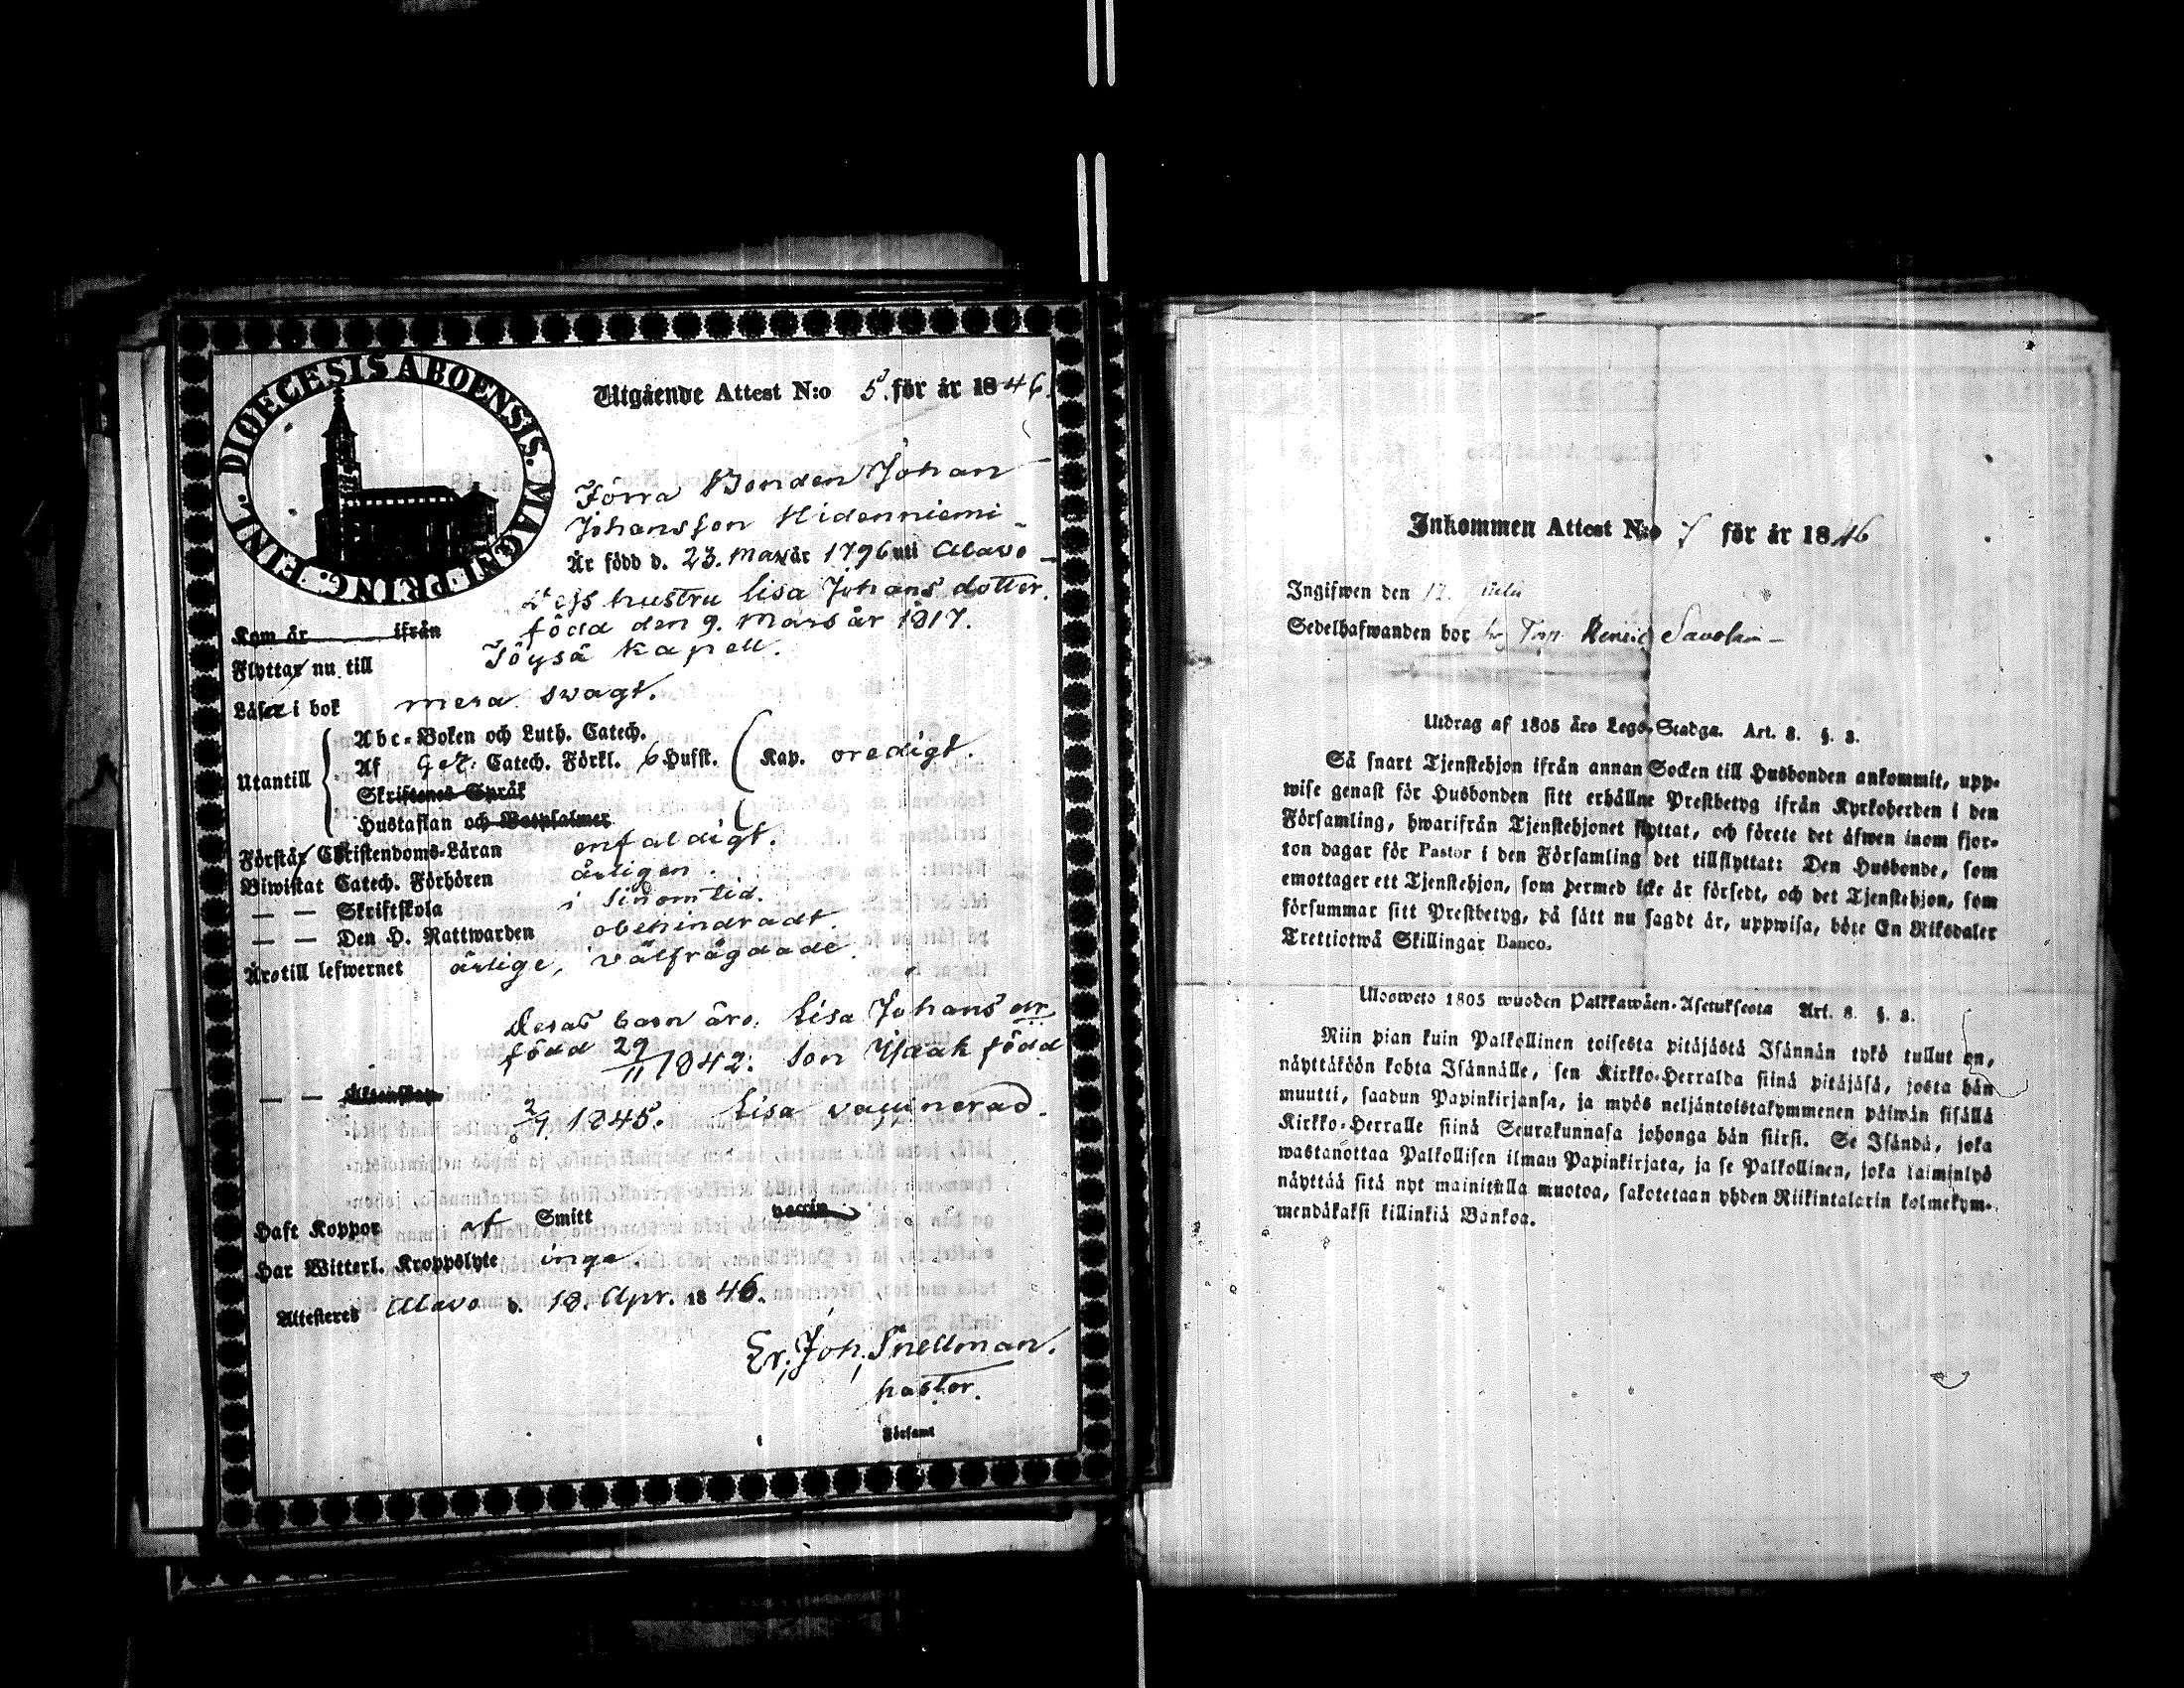 DIOECESIS ABOENSIS. MAGNI PRINC. FINL.
Utgående Attest N:o 5. för år 1846.
Förra Bonden Johan
Johansson Hidenniemi
Är född d. 23. Maj år 1796 uti Alavo
Dess hustru Lisa Johans dotter.
född den 9. Mars år 1817.
Kom år ifrån
Flyttar nu till Töysä Kapell.
Läsa i bok mera svagt.
Utantill
Abc-Boken och Luth. Catech.
Af Catech. Förkl. 6 Hufst. Kap. oredigt.
Skriftenes Språk
Hustaflan och Botpsalmer
Förstår Christendoms-Läran enfaldigt.
Biwistat Catech. Förhören årligen.
— — Skriftskola i sinom tid.
— — Den H. Nattwarden obehindradt.
Äro till lefwernet ärlige, välfrägdade.
Deras barn äro: Lisa Johans dr
född 29/11 1842. Son Isaak född
— —
1845. Lisa vaccinerad.
Haft Koppor af Smitt vaccin
Har Witterl. Kroppslyte inga
Attesteres Alavo d. 18. Apr. 1846.
Er. Joh. Snellman.
pastor.
Församl
Inkommen Attest N:o 7 för år 1846
Ingifwen den 12.
Sedelhafwanden bor Savola
Utdrag af 1805 års Lego-Stadga. Art. 8. §. 8.
Så snart Tjenstehjon ifrån annan Socken till Husbonden ankommit, upp-
wise genast för Husbonden sitt erhållne Prestbetyg ifrån Kyrkoherden i den
Församling, hwarifrån Tjenstehjonet flyttat, och förete det äfwen inom fjor-
ton dagar för Pastor i den Församling det tillflyttat: Den Husbonde, som
emottager ett Tjenstehjon, som dermed icke är försedt, och det Tjenstehjon, som
försummar sitt Prestbetyg, på sätt nu sagdt är, uppwisa, böte En Riksdaler
Trettiotwå Skillingar Banco.
Ulosweto 1805 wuoden Palkkawäen-Asetuksesta Art. 8. §. 8.
Niin pian kuin Palkollinen toisesta pitäjästä Isännän tykö tullut on,
näyttäköön kohta Isännälle, sen Kirkko-Herralda siinä pitäjäsä, josta hän
muutti, saadun Papinkirjansa, ja myös neljäntoistakymmenen päiwän sisällä
Kirkko-Herralle siinä Seurakunnasa johonga hän siirsi. Se Isändä, joka
wastanottaa Palkollisen ilman Papinkirjata, ja se Palkollinen, joka laiminlyö
näyttää sitä nyt mainitulla muotoa, sakotetaan yhden Riikintalarin kolmekym-
mendäkaksi killinkiä Bankoa.